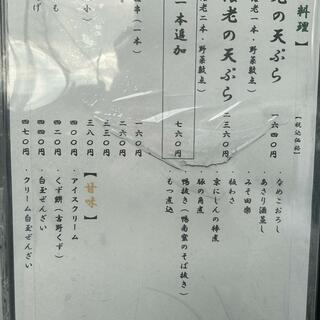 料理】
【税込価格】
老の天ぷら
老一本・野菜数点）
一六四〇円
海老の天ぷら
老二本・野菜数点）
二三六〇円
一本追加
七六〇円
串（一本）
一六〇円
二三〇円
二六〇円
三三〇円
三八〇円
小）
なめこおろし
あさり酒蒸し
みそ田楽
板わさ
京にしんの棒煮
豚の角煮
鴨抜き（鴨南蛮のそば抜き）
もつ煮込
【甘味】
アイスクリーム
くず餅（吉野くず）
四二〇円
白玉ぜんざい
四四〇円
クリーム白玉ぜんざい
四七〇円